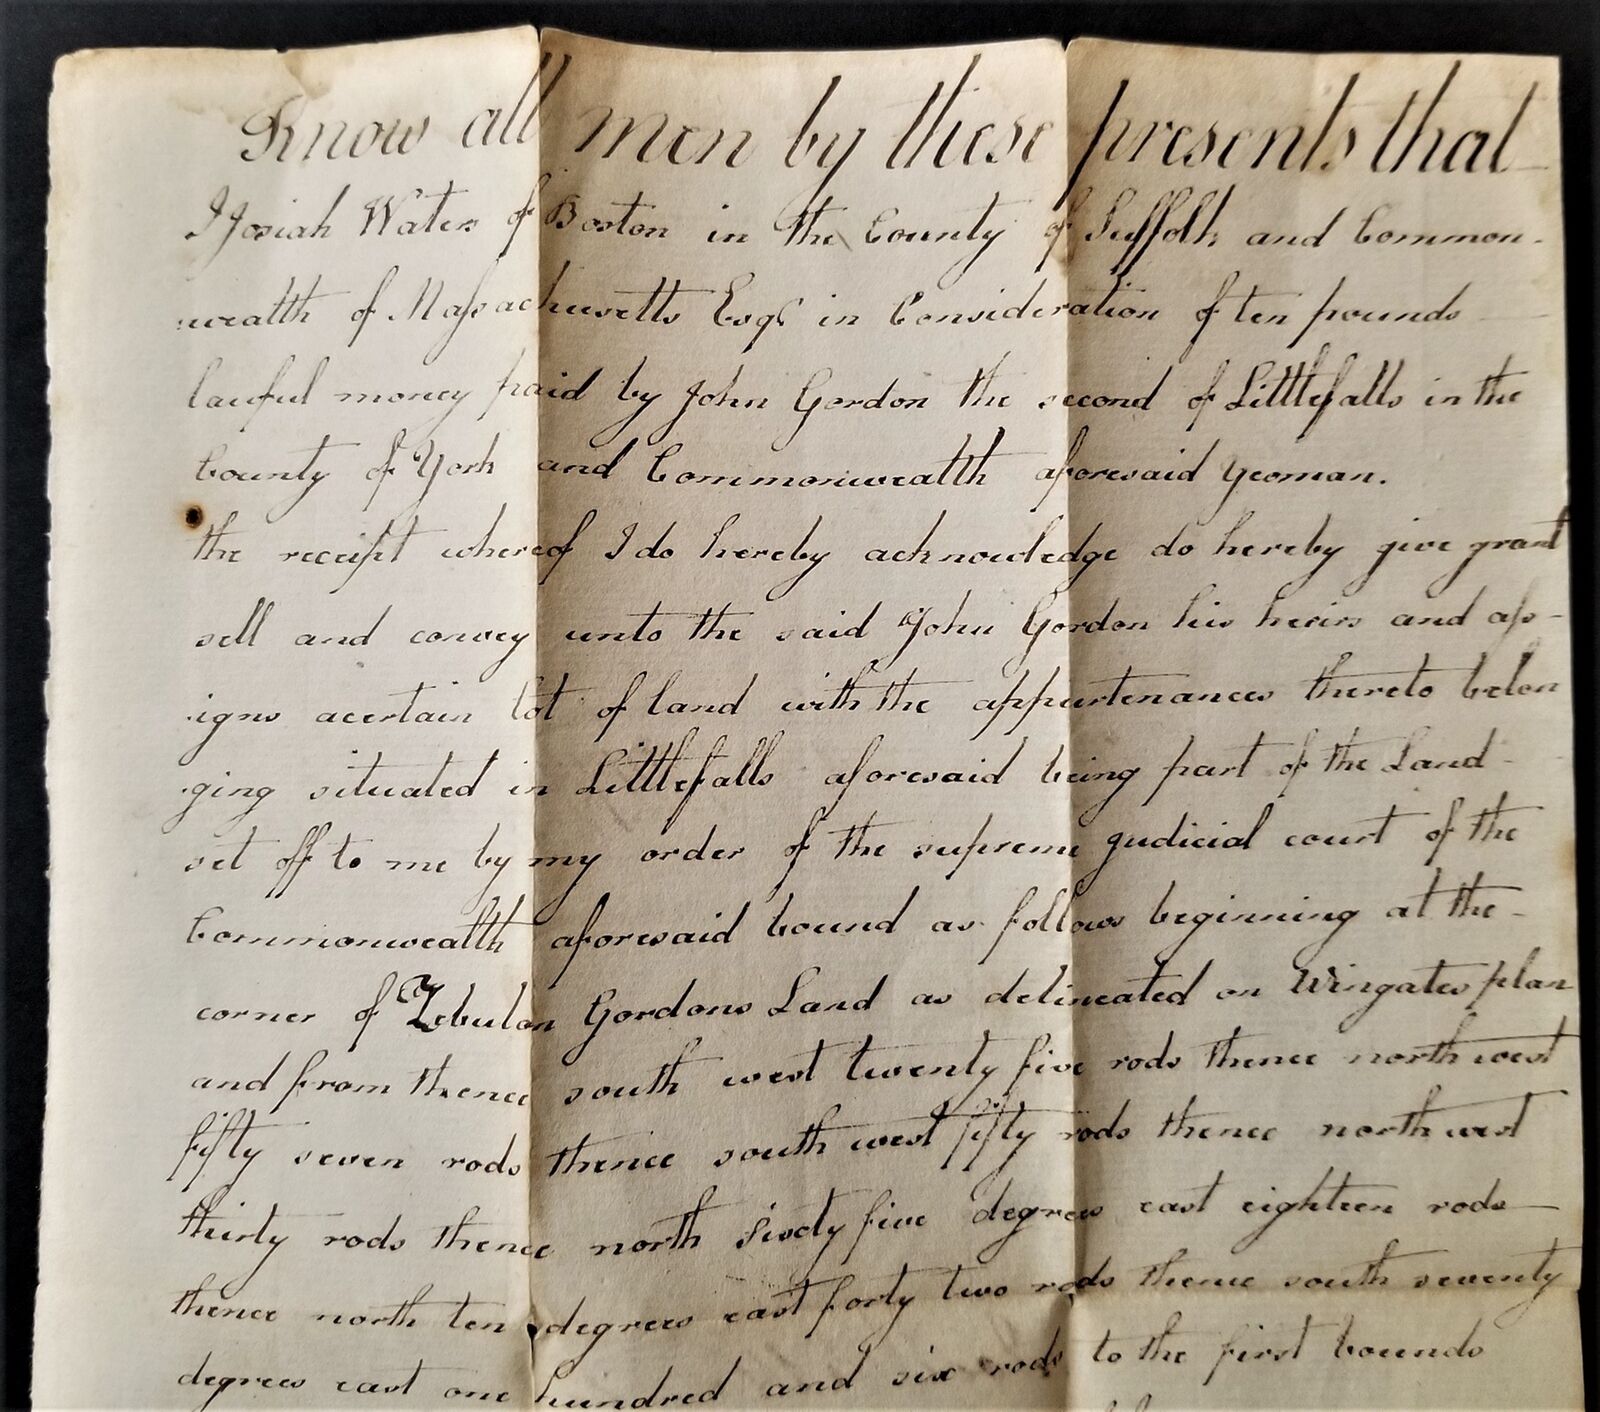 Know all men by these presents that
I Josiah Waters of Boston in the County of Suffolk and Common-
wealth of Massachusetts Esqr in Consideration of ten pounds
lawful money paid by John Gordon the second of Littlefalls in the
County of York and Commonwealth aforesaid yeoman.
the receipt whereof I do hereby acknowledge do hereby give grant
sell and convey unto the said John Gordon his heirs and ass-
igns acertain lot of land with the appurtenances thereto belon
ging situated in Littlefalls aforesaid being part of the Land
set off to me by my order of the supreme judicial court of the
Commonwealth aforesaid bound as follows beginning at the
corner of Zebulon Gordons Land as delineated on Wingates plan
and from thence south west twenty five rods thence north west
fifty seven rods thence south west fifty rods thence north west
thirty rods thence north sixty five degrees east eighteen rods
thence north ten degrees east forty two rods thence south seventy
degrees east one hundred and six rods to the first bounds